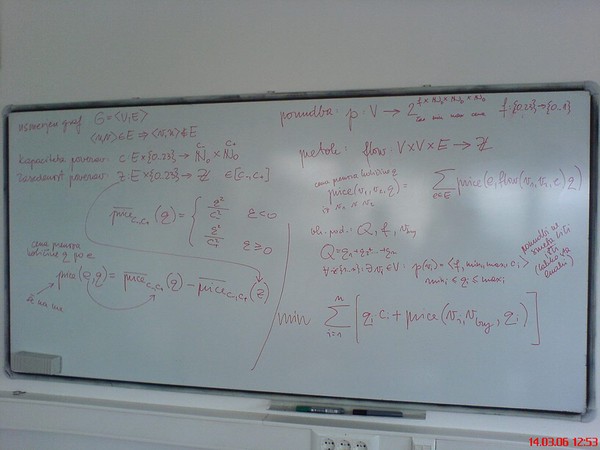 usmerjen graf G=⟨V,E⟩
⟨u,v⟩∈E ⇒ ⟨v,u⟩∉E
kapaciteta povezav: c:E×{0..23}→ℕ₀×ℕ₀
C₋ C₊
zasedenost povezav: z:E×{0..23}→ℤ ∈[c₋,c₊]
price_{c₋,c₊}(q) = { q²/c₋² q<0
q²/c₊² q≥0
cena prenosa
količine q po e
price(e,q) = price_{c₋,c₊}(q) − price_{c₋,c₊}(z)
ponudba: p:V→2^{f×ℕ₀×ℕ₀×ℕ₀} f:{0..23}→{0..1}
čas min max cena
pretok: flow:V×V×E→ℤ
cena prenosa količine q
price(v₁,v₂,q) = Σ_{e∈E} price(e, flow(v₁,v₂,e) q)
iz v₁ v v₂
Q, f, v_buy
Q=q₁+q₂+...+qₙ
∀i∈{1..n}:∃vᵢ∈V: p(vᵢ)=⟨f,minᵢ,maxᵢ,cᵢ⟩
minᵢ ≤ qᵢ ≤ maxᵢ
min Σ_{i=1}^{n} [qᵢcᵢ + price(vᵢ,v_buy,qᵢ)]
14.03.06 12:53